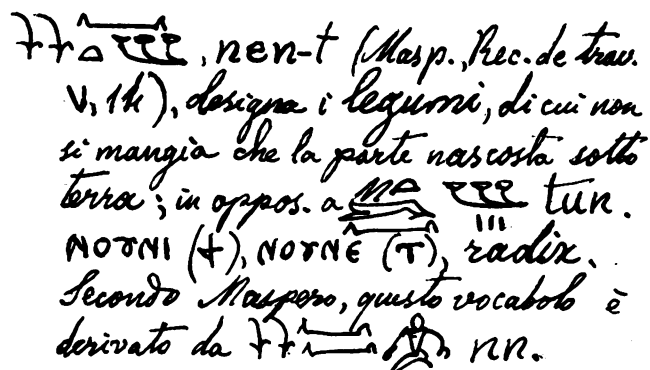 , nen-t (Masp., Rec. de trav.
V, designa i legumi, di cui non
si mangia che la parte nascosta sotto
terra; in oppos. a tun.
ⲚⲞⲨⲚⲒ (ϯ), ⲚⲞⲨⲚⲈ (Ⲧ), radix.
Secondo Maspero, questo vocabolo è
derivato da nn.